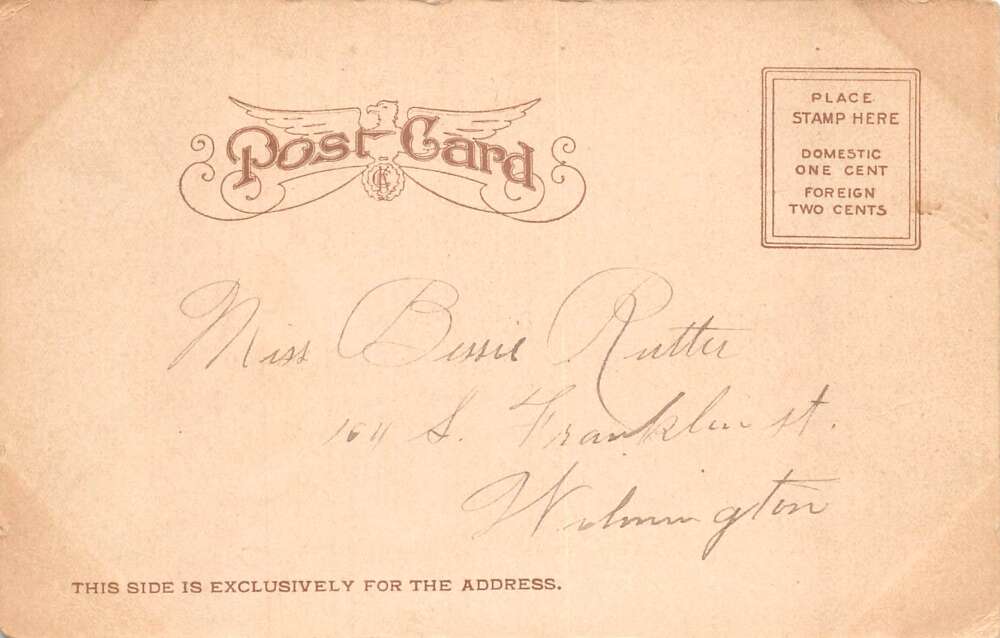 Post Card
PLACE
STAMP HERE
DOMESTIC
ONE CENT
FOREIGN
TWO CENTS
Miss Bessie Rutter
S. Franklin st.
Wilmington
THIS SIDE IS EXCLUSIVELY FOR THE ADDRESS.